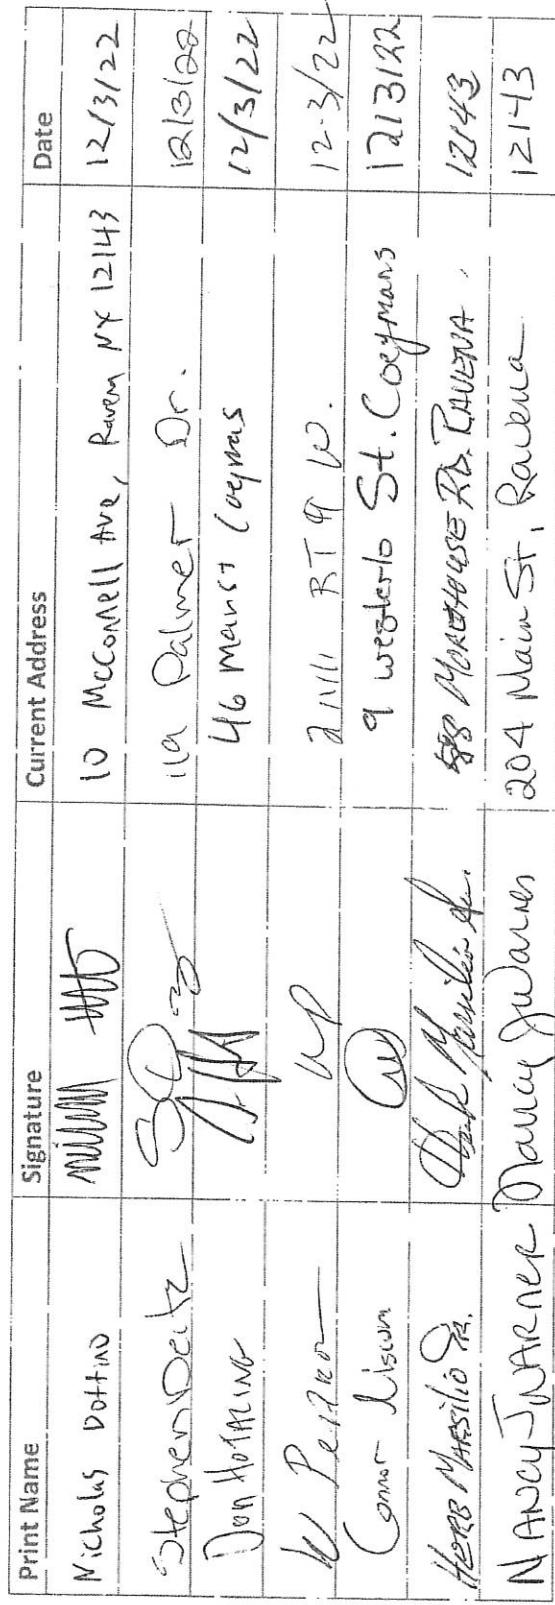 Print Name Signature Current Address Date
Nicholas Dottino 10 McConnell Ave, Ravena NY 12143 12/3/22
Stephen Deitz 119 Palmer Dr. 12/3/22
Don Hotaling 46 Main St Coeymans 12/3/22
W RT 9 W. 12-3/22
Connor 9 westerlo St. Coeymans 12/3/22
HERB MARSILIO JR. MOREHOUSE RD. RAVENA. 12143
NANCY J WARNER Nancy J Warner 204 Main St, Ravena 12143